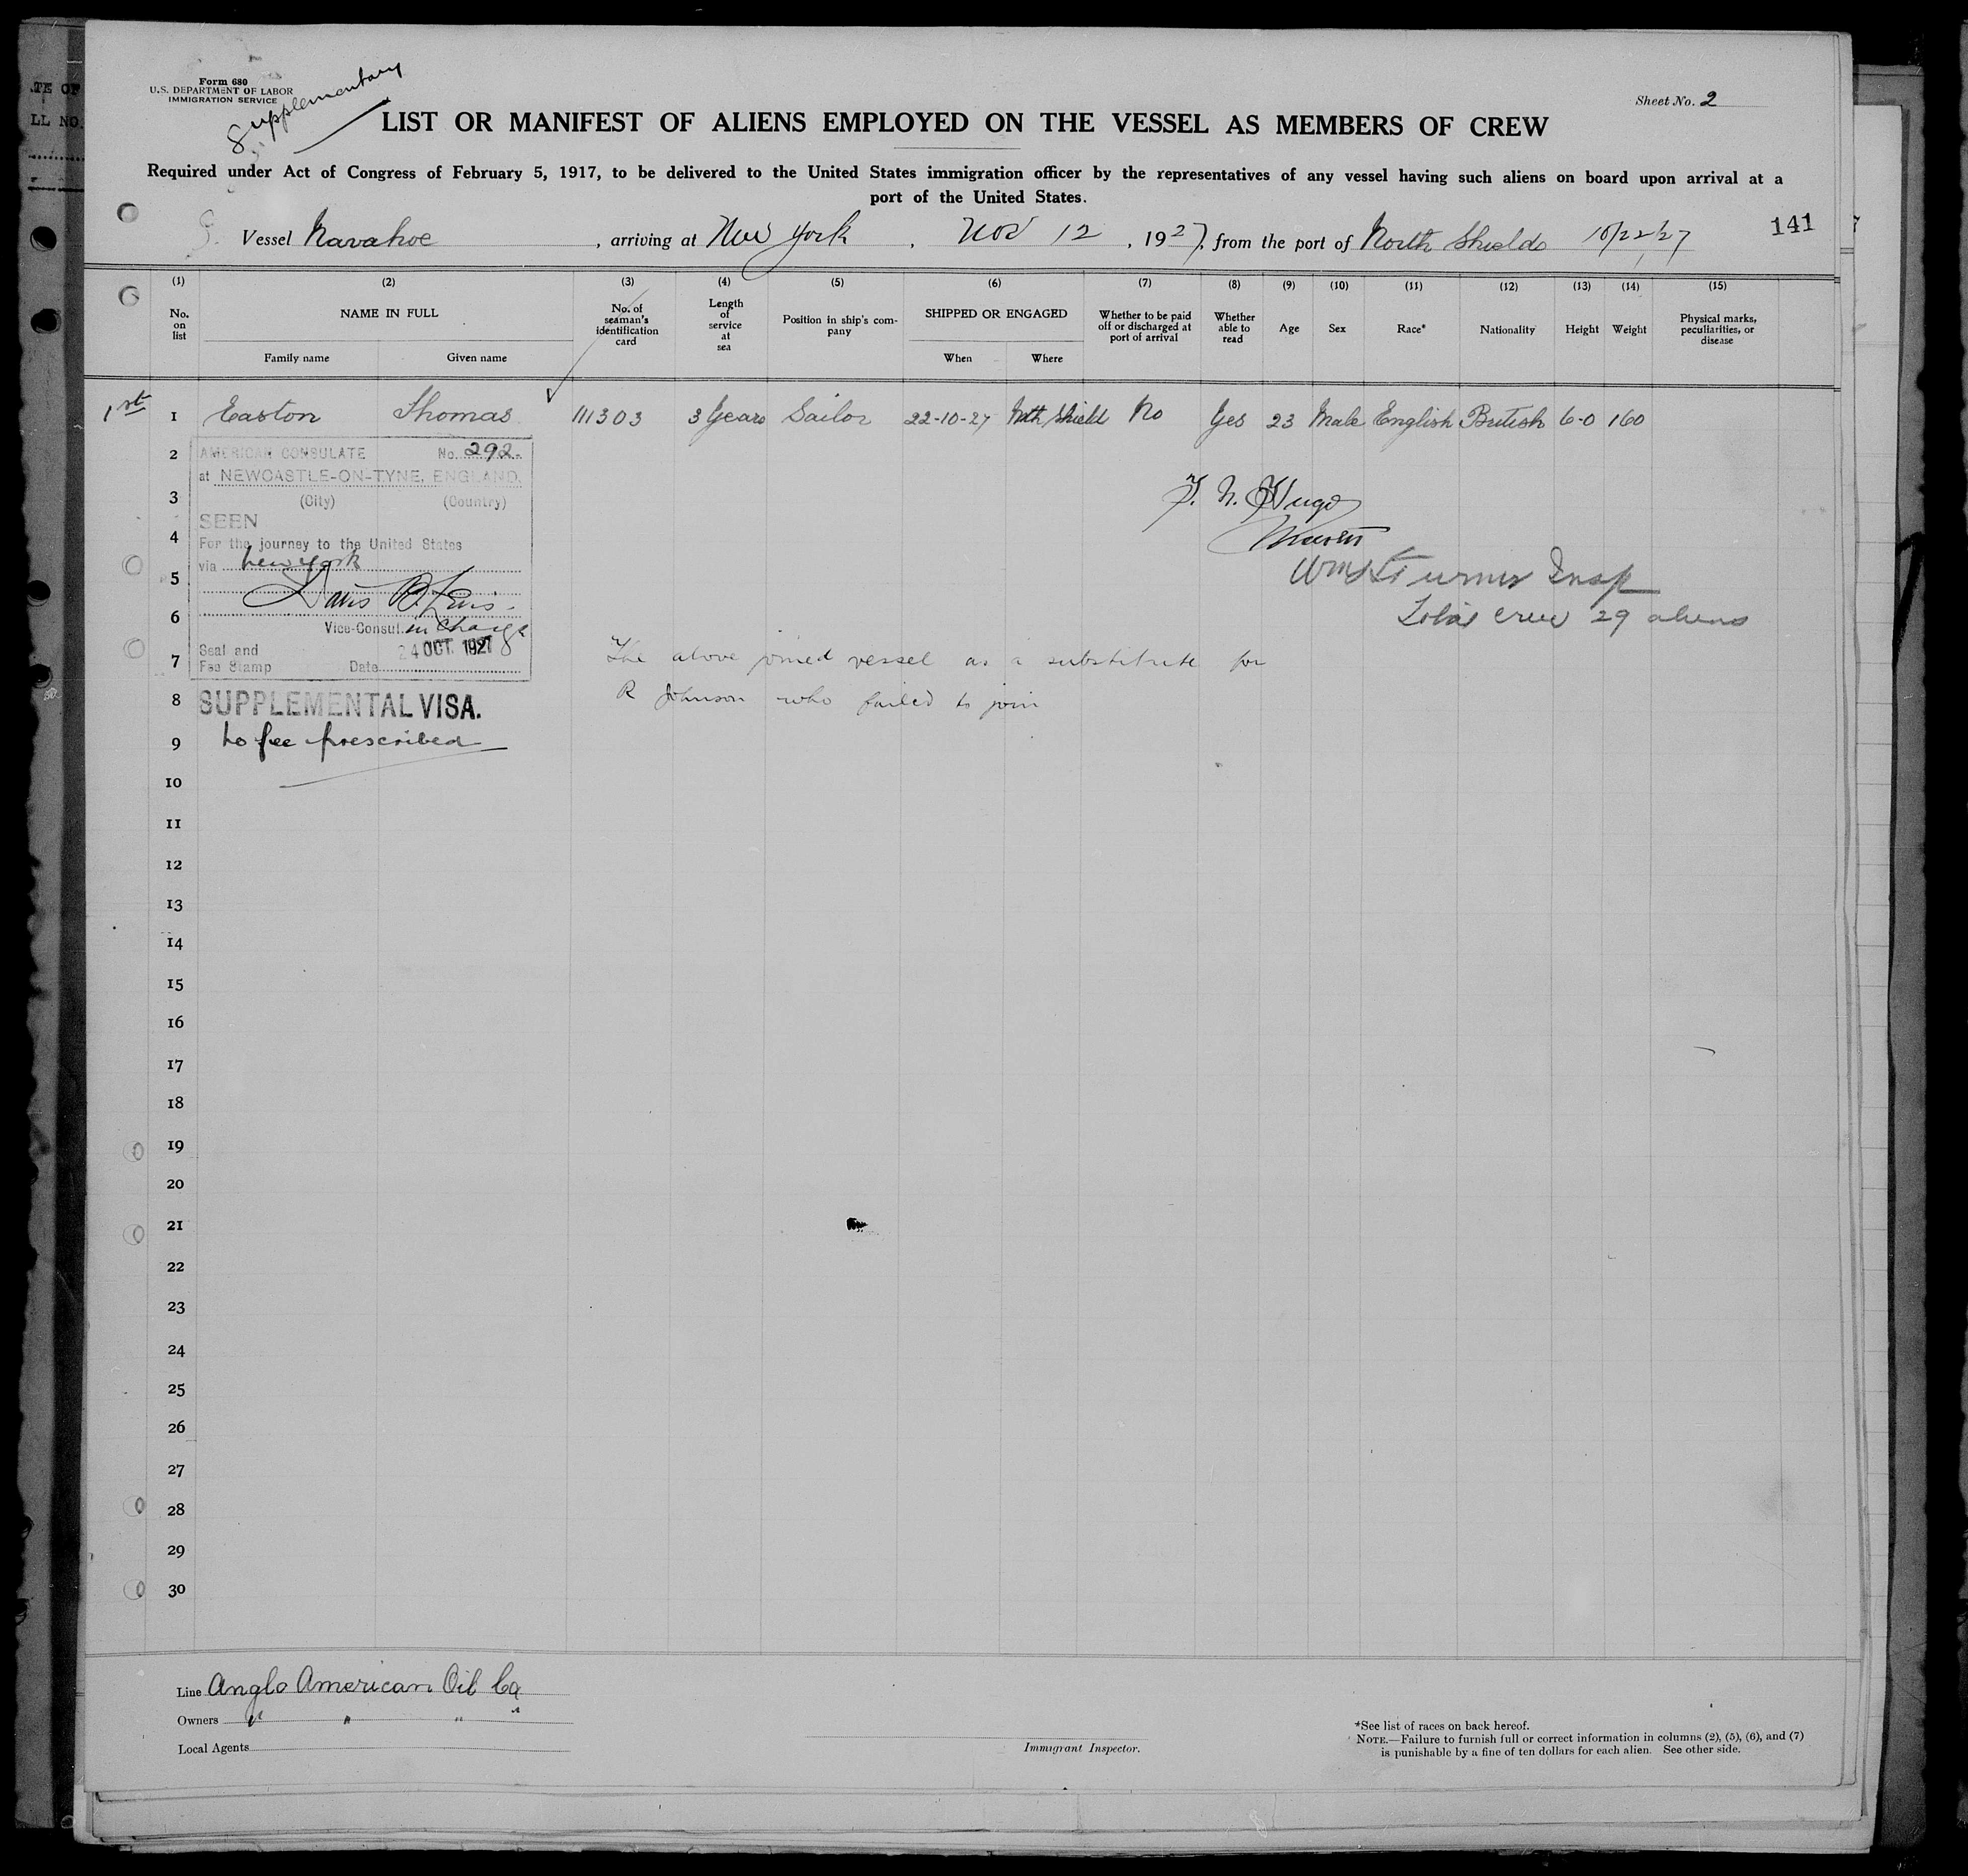 Form 680
U.S. DEPARTMENT OF LABOR
IMMIGRATION SERVICE
Supplementary
Sheet No. 2
LIST OR MANIFEST OF ALIENS EMPLOYED ON THE VESSEL AS MEMBERS OF CREW
Required under Act of Congress of February 5, 1917, to be delivered to the United States immigration officer by the representatives of any vessel having such aliens on board upon arrival at a
port of the United States.
Vessel Navahoe, arriving at New York, Nov 12, 1927, from the port of North Shields 10/22/27
141
(1) (2) (3) (4) (5) (6) (7) (8) (9) (10) (11) (12) (13) (14) (15)
No. on list
NAME IN FULL
Family name Given name
No. of seaman's identification card
Length of service at sea
Position in ship's company
SHIPPED OR ENGAGED
When Where
Whether to be paid off or discharged at port of arrival
Whether able to read
Age
Sex
Race*
Nationality
Height
Weight
Physical marks, peculiarities, or disease
1st 1 Easton Thomas 111303 3 Years Sailor 22-10-27 Nth Shields No Yes 23 Male English British 6-0 160
2
3
4
5
6
7
8
9
10
11
12
13
14
15
16
17
18
19
20
21
22
23
24
25
26
27
28
29
30
AMERICAN CONSULATE No. 292
at NEWCASTLE-ON-TYNE, ENGLAND.
(City) (Country)
SEEN
For the journey to the United States
via New York
Vice-Consul in charge
Seal and
Fee Stamp Date 24 OCT. 1927
SUPPLEMENTAL VISA.
No fee prescribed
Hugo
Master
Turner Insp
Total crew 29 aliens
The above joined vessel as a substitute for
R Johnson who failed to join
Line Anglo American Oil Co
Owners " " " "
Local Agents
Immigrant Inspector.
*See list of races on back hereof.
NOTE.—Failure to furnish full or correct information in columns (2), (5), (6), and (7)
is punishable by a fine of ten dollars for each alien. See other side.